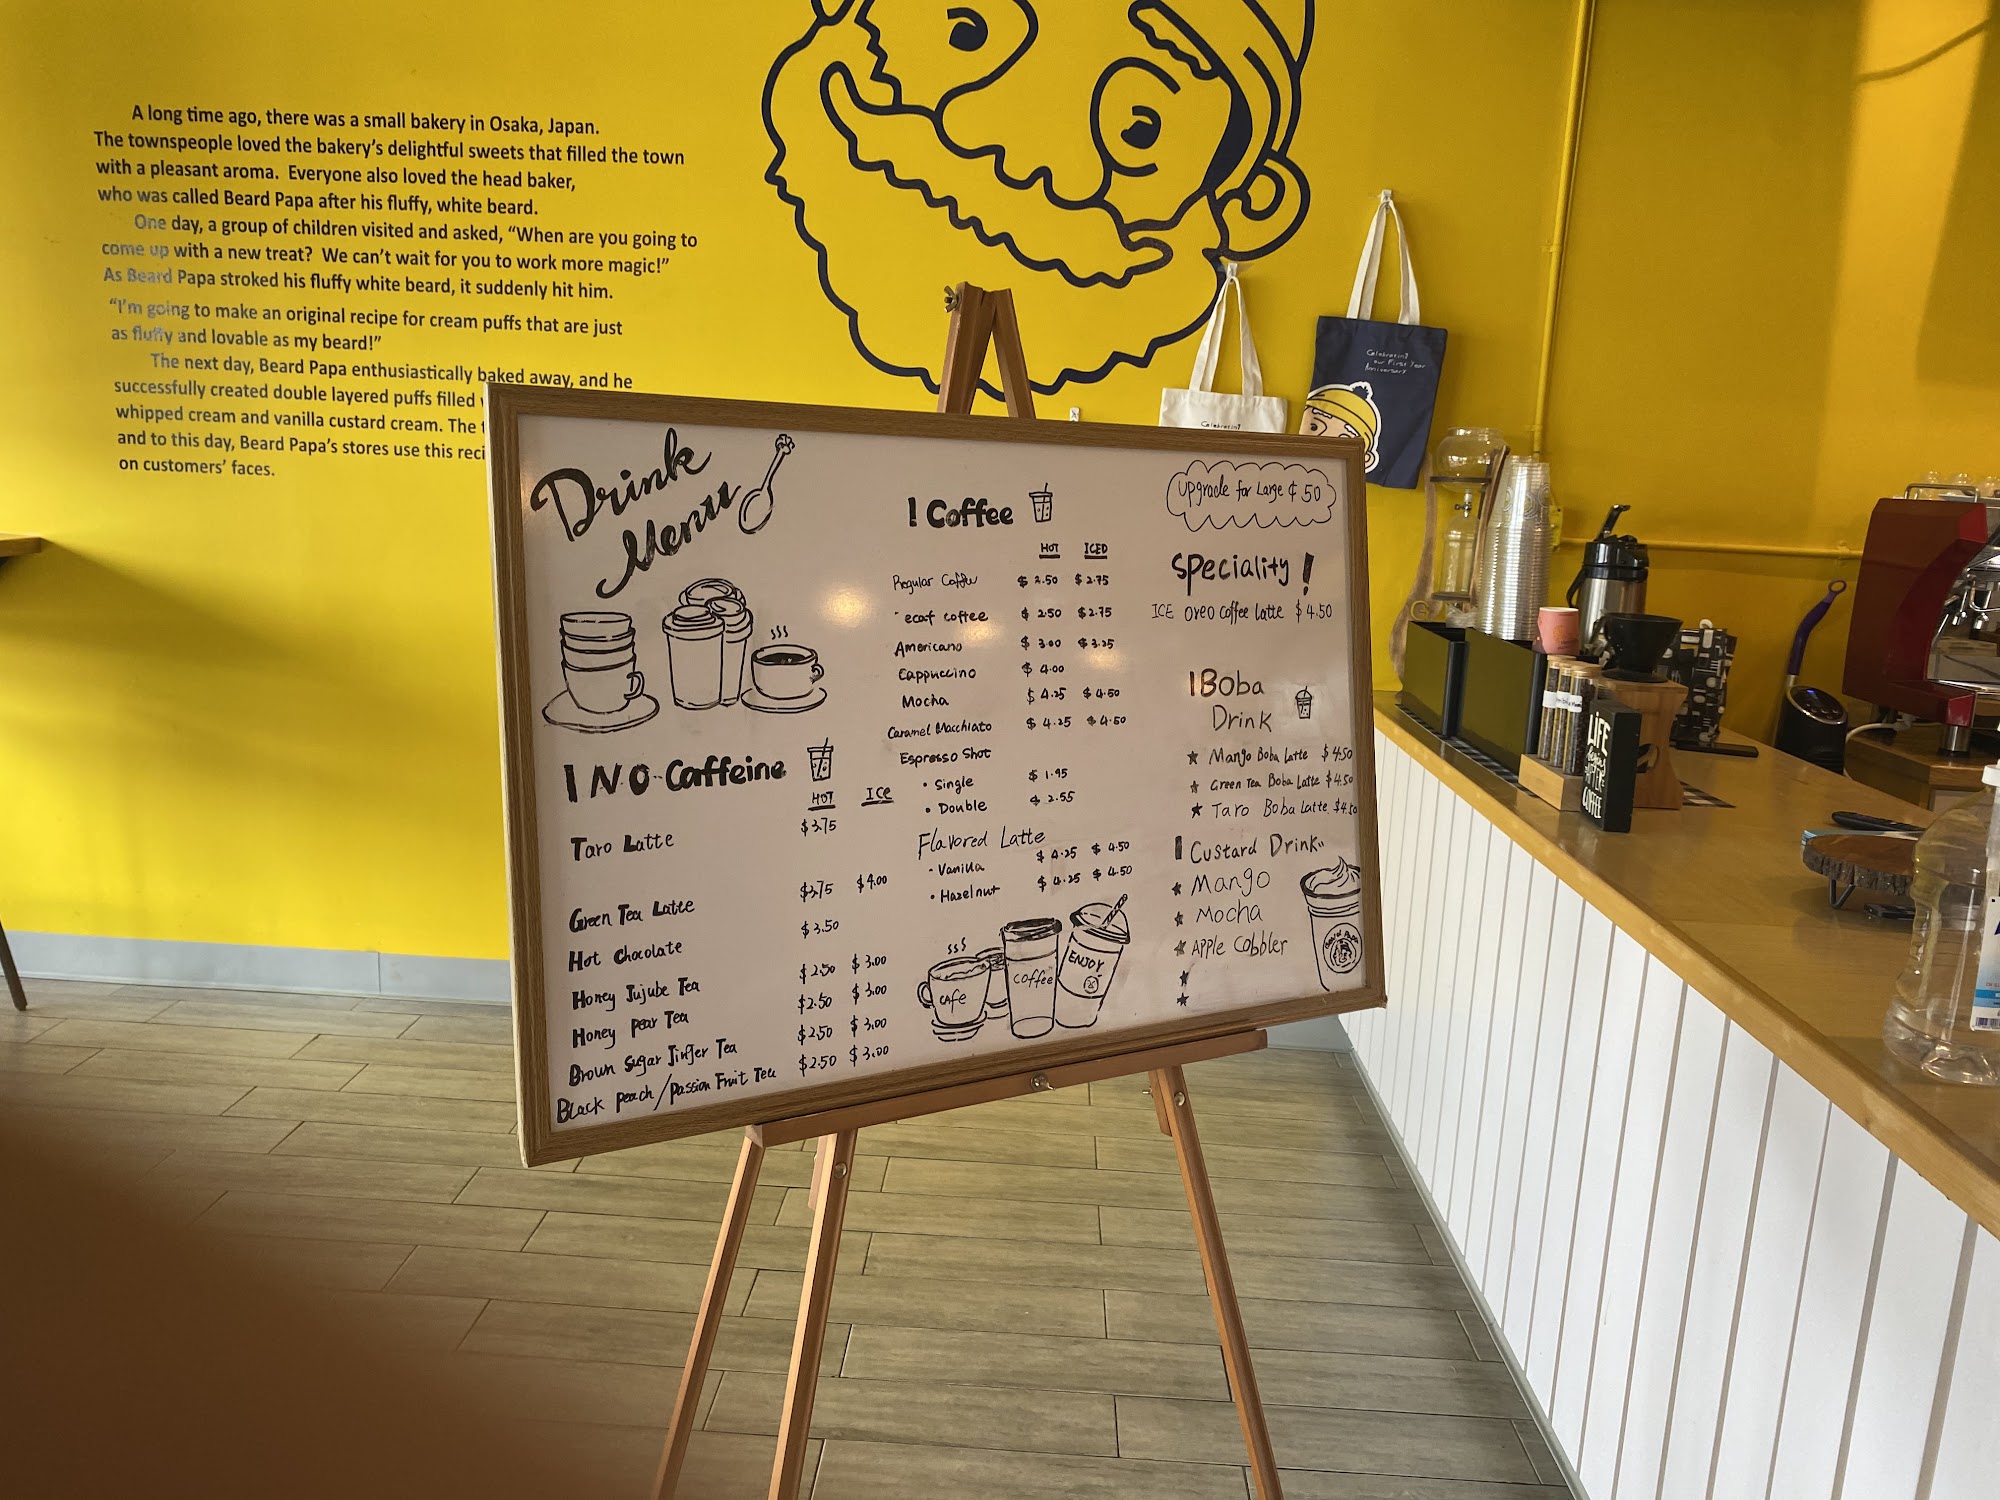 A long time ago, there was a small bakery in Osaka, Japan.
The townspeople loved the bakery's delightful sweets that filled the town
with a pleasant aroma. Everyone also loved the head baker,
who was called Beard Papa after his fluffy, white beard.
One day, a group of children visited and asked, "When are you going to
come up with a new treat? We can't wait for you to work more magic!"
As Beard Papa stroked his fluffy white beard, it suddenly hit him.
"I'm going to make an original recipe for cream puffs that are just
as fluffy and lovable as my beard!"
The next day, Beard Papa enthusiastically baked away, and he
successfully created double layered puffs filled
whipped cream and vanilla custard cream. The
and to this day, Beard Papa's stores use this reci
on customers' faces.
Celebrating
our First Year
Anniversary
Celebrating
Drink
Menu
I NO-Caffeine
HOT ICE
Taro Latte $3.75
Green Tea Latte $3.75 $4.00
Hot Chocolate $3.50
Honey Jujube Tea $2.50 $3.00
Honey pear Tea $2.50 $3.00
Brown Sugar Jinjer Tea $2.50 $3.00
Black peach/passion Fruit Tea $2.50 $3.00
I Coffee
HOT ICED
Regular Coffee $2.50 $2.75
ecaf coffee $2.50 $2.75
Americano $3.00 $3.25
Cappuccino $4.00
Mocha $4.25 $4.50
Caramel Macchiato $4.25 $4.50
Espresso Shot
• Single $1.95
• Double $2.55
Flavored Latte
- Vanilla $4.25 $4.50
• Hazelnut $4.25 $4.50
CAFe
coffee
ENJOY
upgrade for Large ¢ 50
Speciality!
ICE oreo coffee latte $4.50
I Boba
Drink
★ Mango Boba Latte $4.50
★ Green Tea Boba Latte $4.50
★ Taro Boba Latte $4.50
I Custard Drink
★ Mango
★ Mocha
★ Apple Cobbler
★
★
Beard Papa
LIFE
begins
AFTER
COFFEE